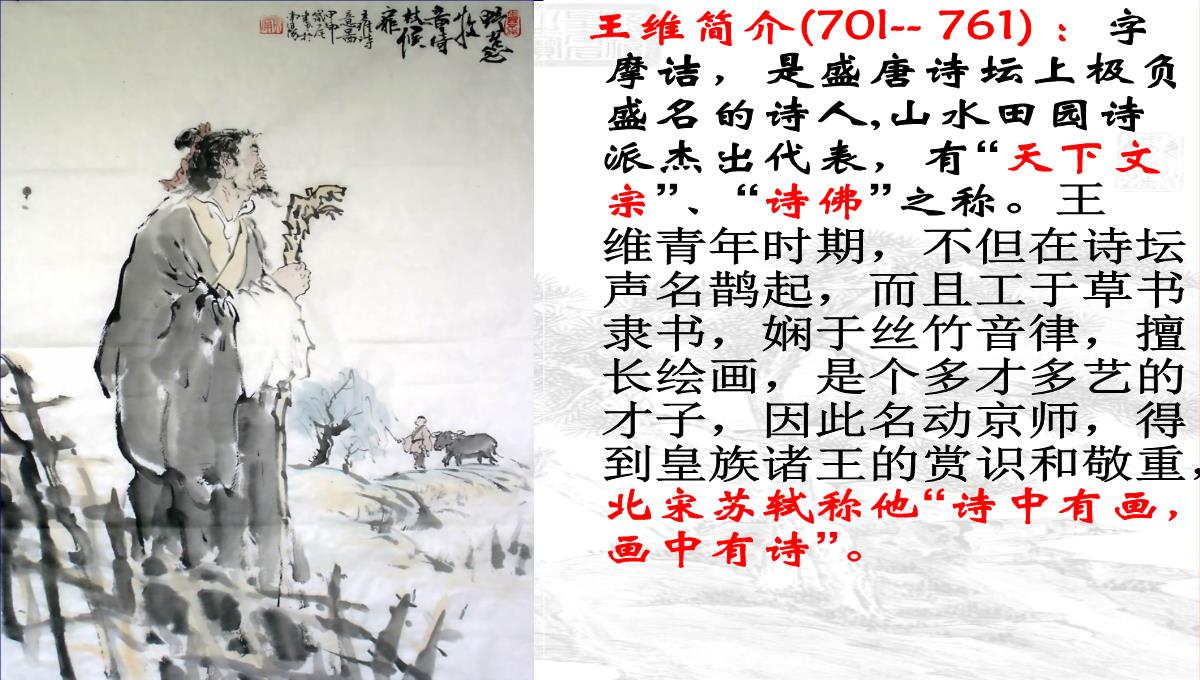 野老念
牧童倚
杖候荆
扉
王维诗
意图
甲申
王维简介(70l-- 761) ：字
摩诘，是盛唐诗坛上极负
盛名的诗人,山水田园诗
派杰出代表，有“天下文
宗”、“诗佛”之称。王
维青年时期，不但在诗坛
声名鹊起，而且工于草书
隶书，娴于丝竹音律，擅
长绘画，是个多才多艺的
才子，因此名动京师，得
到皇族诸王的赏识和敬重，
北宋苏轼称他“诗中有画，
画中有诗”。